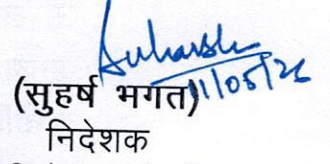 Suharsh
11/05/26
(सुहर्ष भगत)
निदेशक